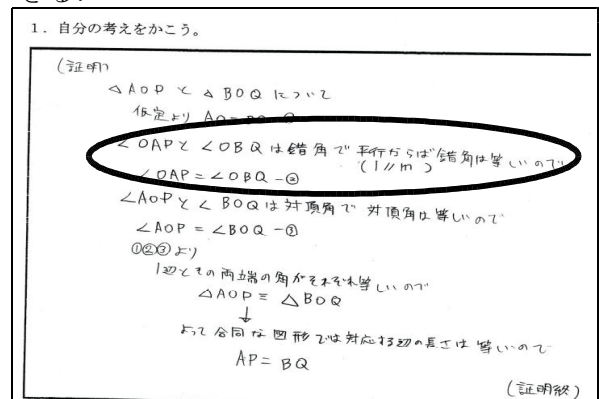 1．自分の考えをかこう。
(証明)
△AOPと△BOQについて
仮定より AO=BO-①
∠OAPと∠OBQは錯角で平行ならば錯角は等しいので
(l//m)
∠OAP=∠OBQ-②
∠AOPと∠BOQは対頂角で対頂角は等しいので
∠AOP=∠BOQ-③
①②③より
1辺とその両端の角がそれぞれ等しいので
△AOP≡△BOQ
↓
よって合同な図形では対応する辺の長さは等しいので
AP=BQ
(証明終)